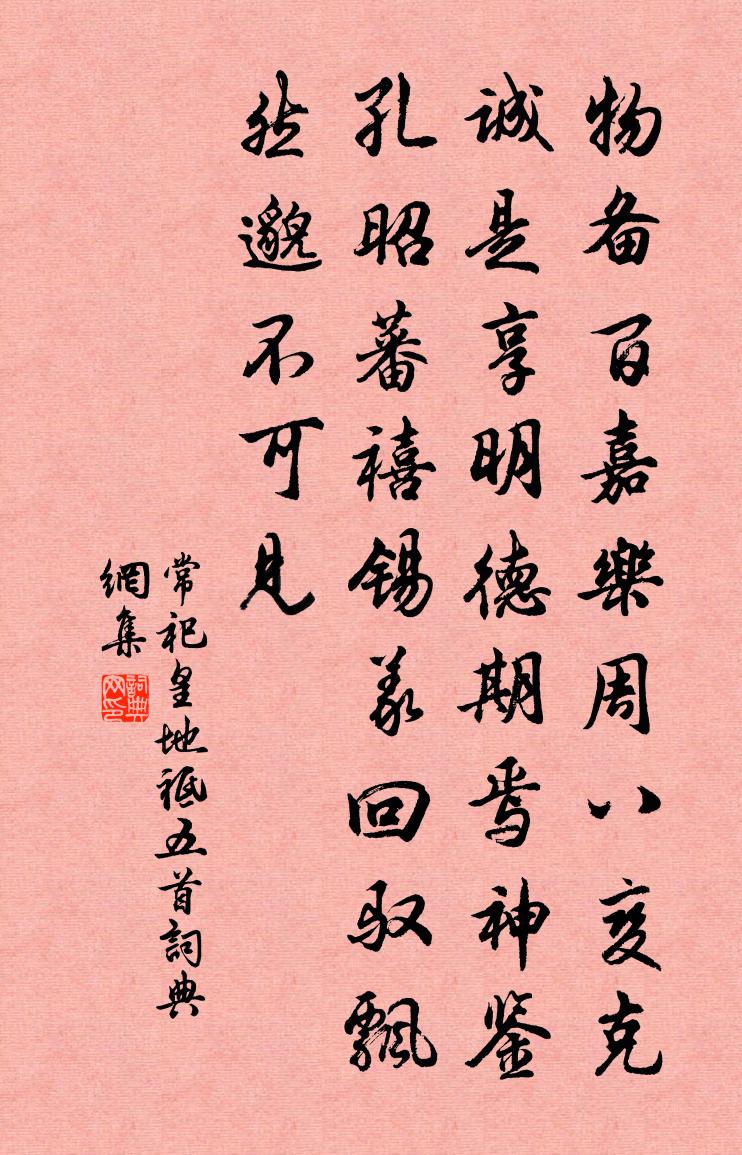 物备百嘉樂周八变克
诚是享明德期焉神鉴
孔昭蕃禧锡羡回驭飘
然邈不可見
常祀皇地祇五首詞典
網集
詞典网印